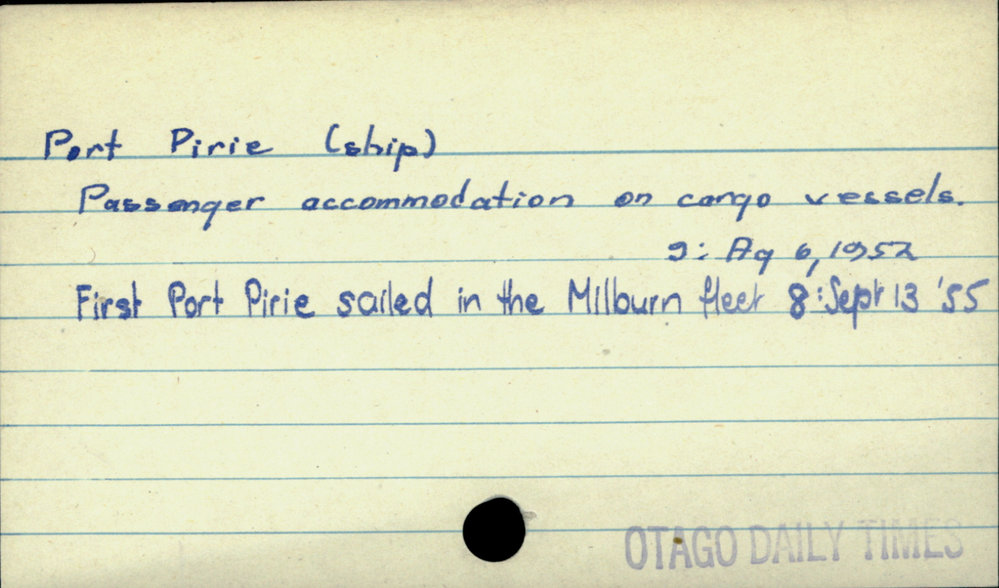 Port Pirie (ship)
Passenger accommodation on cargo vessels.
9: Ag 6, 1952
First Port Pirie sailed in the Milburn fleet 8: Sept 13 '55
OTAGO DAILY TIMES